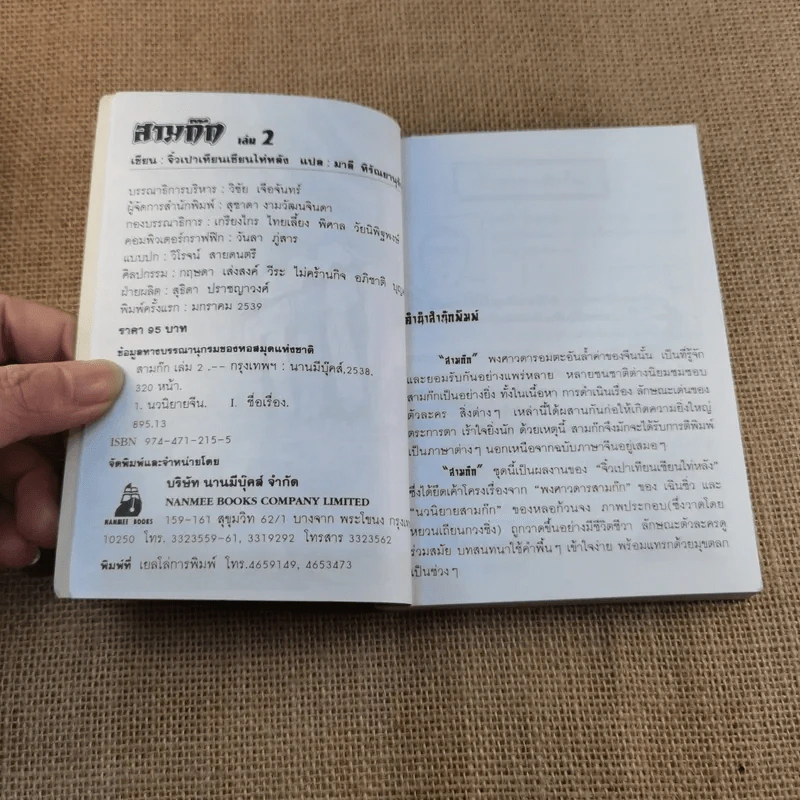 สามก๊ก เล่ม 2
เขียน : จิ๋วเปาเทียนเซียนไท่หลัง แปล : มาลี
บรรณาธิการบริหาร : วิชัย เจือจันทร์
ผู้จัดการสำนักพิมพ์ : สุชาดา งามวัฒนจินดา
กองบรรณาธิการ : เกรียงไกร ไทยเลี้ยง พิศาล วัยนิพิฐพงษ์
คอมพิวเตอร์กราฟฟิก : วันลา ภู่สาร
แบบปก : วิโรจน์ สายดนตรี
ศิลปกรรม : กฤษดา เส่งสงค์ วีระ ไม่คร้านกิจ อภิชาติ
ฝ่ายผลิต : สุธิดา ปราชญาวงศ์
พิมพ์ครั้งแรก : มกราคม 2539
ราคา 95 บาท
ข้อมูลทางบรรณานุกรมของหอสมุดแห่งชาติ
สามก๊ก เล่ม 2 .-- กรุงเทพฯ : นานมีบุ๊คส์,2538.
320 หน้า.
1. นวนิยายจีน. I. ชื่อเรื่อง.
895.13
ISBN 974-471-215-5
จัดพิมพ์และจำหน่ายโดย
บริษัท นานมีบุ๊คส์ จำกัด
NANMEE BOOKS COMPANY LIMITED
NANMEE BOOKS
159-161 สุขุมวิท 62/1 บางจาก พระโขนง
10250 โทร. 3323559-61, 3319292 โทรสาร 3323562
พิมพ์ที่ เยลโล่การพิมพ์ โทร.4659149, 4653473
คำนำสำนักพิมพ์
"สามก๊ก" พงศาวดารอมตะอันล้ำค่าของจีนนั้น เป็นที่รู้จัก
และยอมรับกันอย่างแพร่หลาย หลายชนชาติต่างนิยมชมชอบ
สามก๊กเป็นอย่างยิ่ง ทั้งในเนื้อหา การดำเนินเรื่อง ลักษณะเด่นของ
ตัวละคร สิ่งต่างๆ เหล่านี้ได้ผสานกันก่อให้เกิดความยิ่งใหญ่
ตระการตา เร้าใจยิ่งนัก ด้วยเหตุนี้ สามก๊กจึงมักจะได้รับการตีพิมพ์
เป็นภาษาต่างๆ นอกเหนือจากฉบับภาษาจีนอยู่เสมอๆ
"สามก๊ก" ชุดนี้เป็นผลงานของ "จิ๋วเปาเทียนเซียนไท่หลัง"
ซึ่งได้ยึดเค้าโครงเรื่องจาก "พงศาวดารสามก๊ก" ของ เฉินซิ่ว และ
"นวนิยายสามก๊ก" ของหลอก้วนจง ภาพประกอบ(ซึ่งวาดโดย
หยวนเถียนกวงซิ่ง) ถูกวาดขึ้นอย่างมีชีวิตชีวา ลักษณะตัวละครดู
ร่วมสมัย บทสนทนาใช้คำพื้นๆ เข้าใจง่าย พร้อมแทรกด้วยมุขตลก
เป็นช่วงๆ